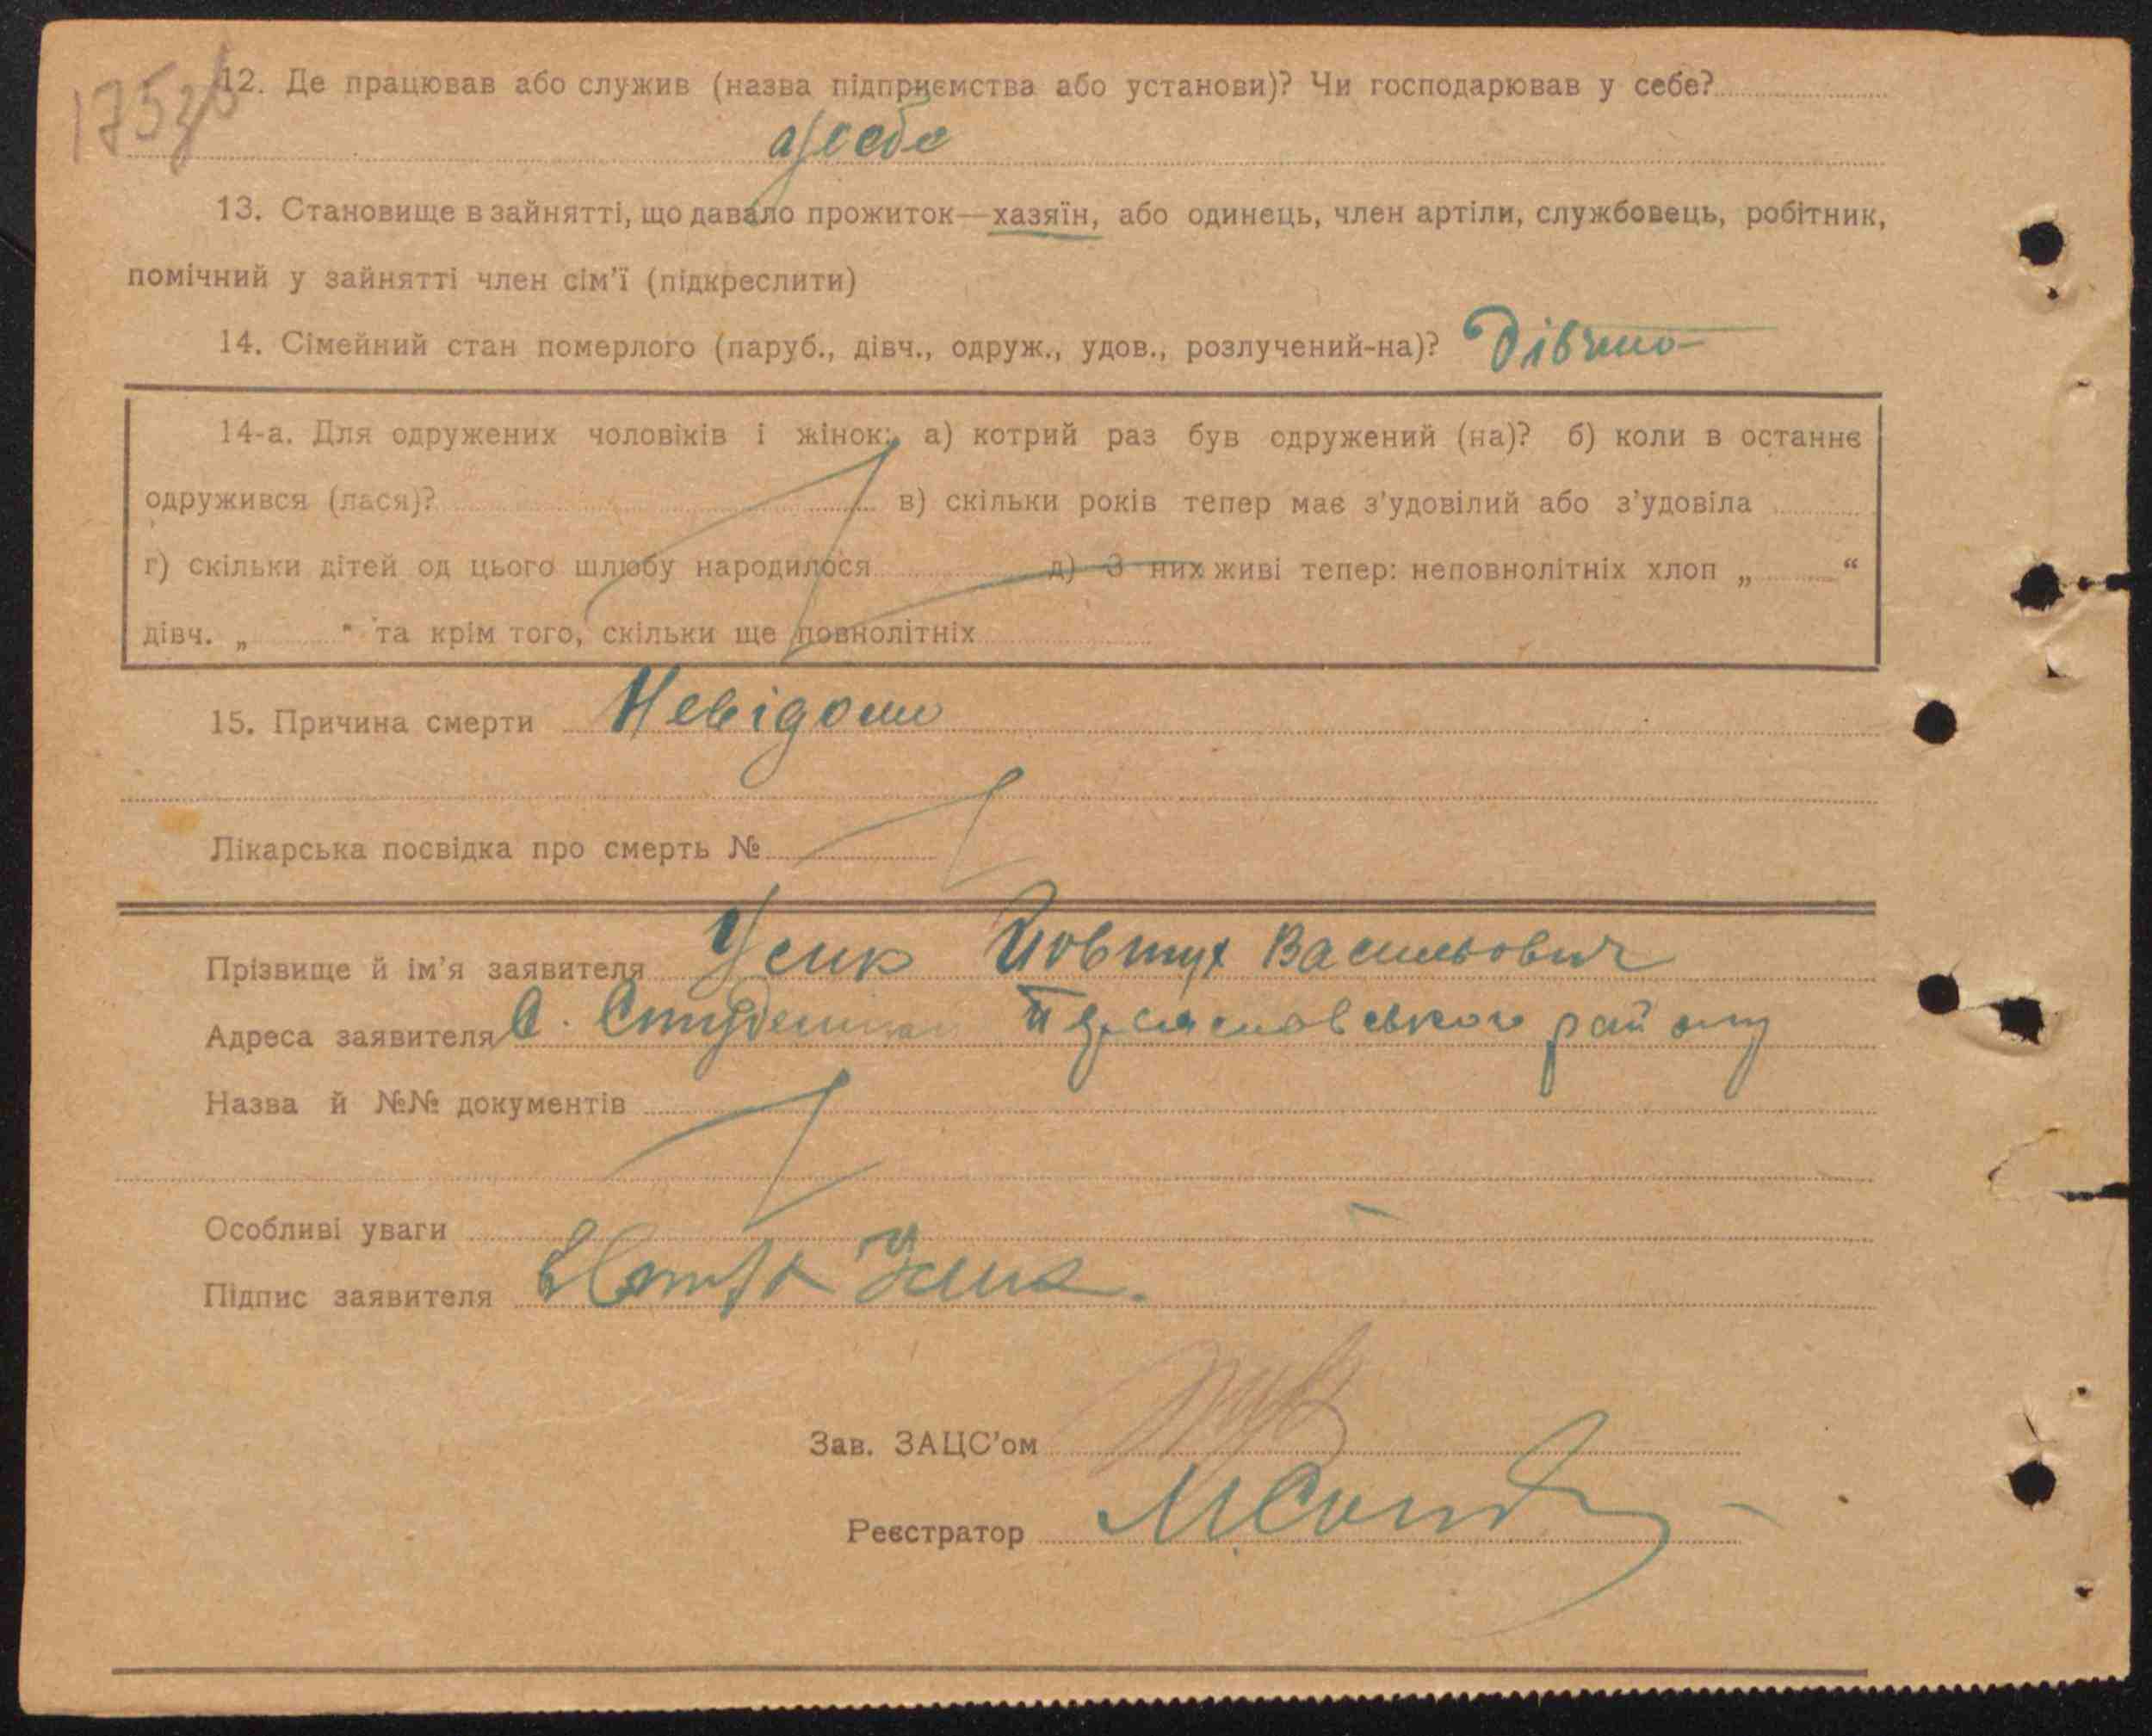 175зв
12. Де працював або служив (назва підприємства або установи)? Чи господарював у себе?
у себе
13. Становище в зайнятті, що давало прожиток—хазяїн, або одинець, член артіли, службовець, робітник,
помічний у зайнятті член сім'ї (підкреслити)
14. Сімейний стан померлого (паруб., дівч., одруж., удов., розлучений-на)? Дівчина
14-а. Для одружених чоловіків і жінок: а) котрий раз був одружений (на)? б) коли в останнє
одружився (лася)? в) скільки років тепер має з'удовілий або з'удовіла
г) скільки дітей од цього шлюбу народилося д) З них живі тепер: неповнолітніх хлоп „ “
дівч. „ “ та крім того, скільки ще повнолітніх
15. Причина смерти Невідома
Лікарська посвідка про смерть №
Прізвище й ім'я заявителя Усик Йовтух Васильович
Адреса заявителя С. Студеники Переяславського району
Назва й №№ документів
Особливі уваги
Підпис заявителя Усик.
Зав. ЗАЦС'ом
Реєстратор